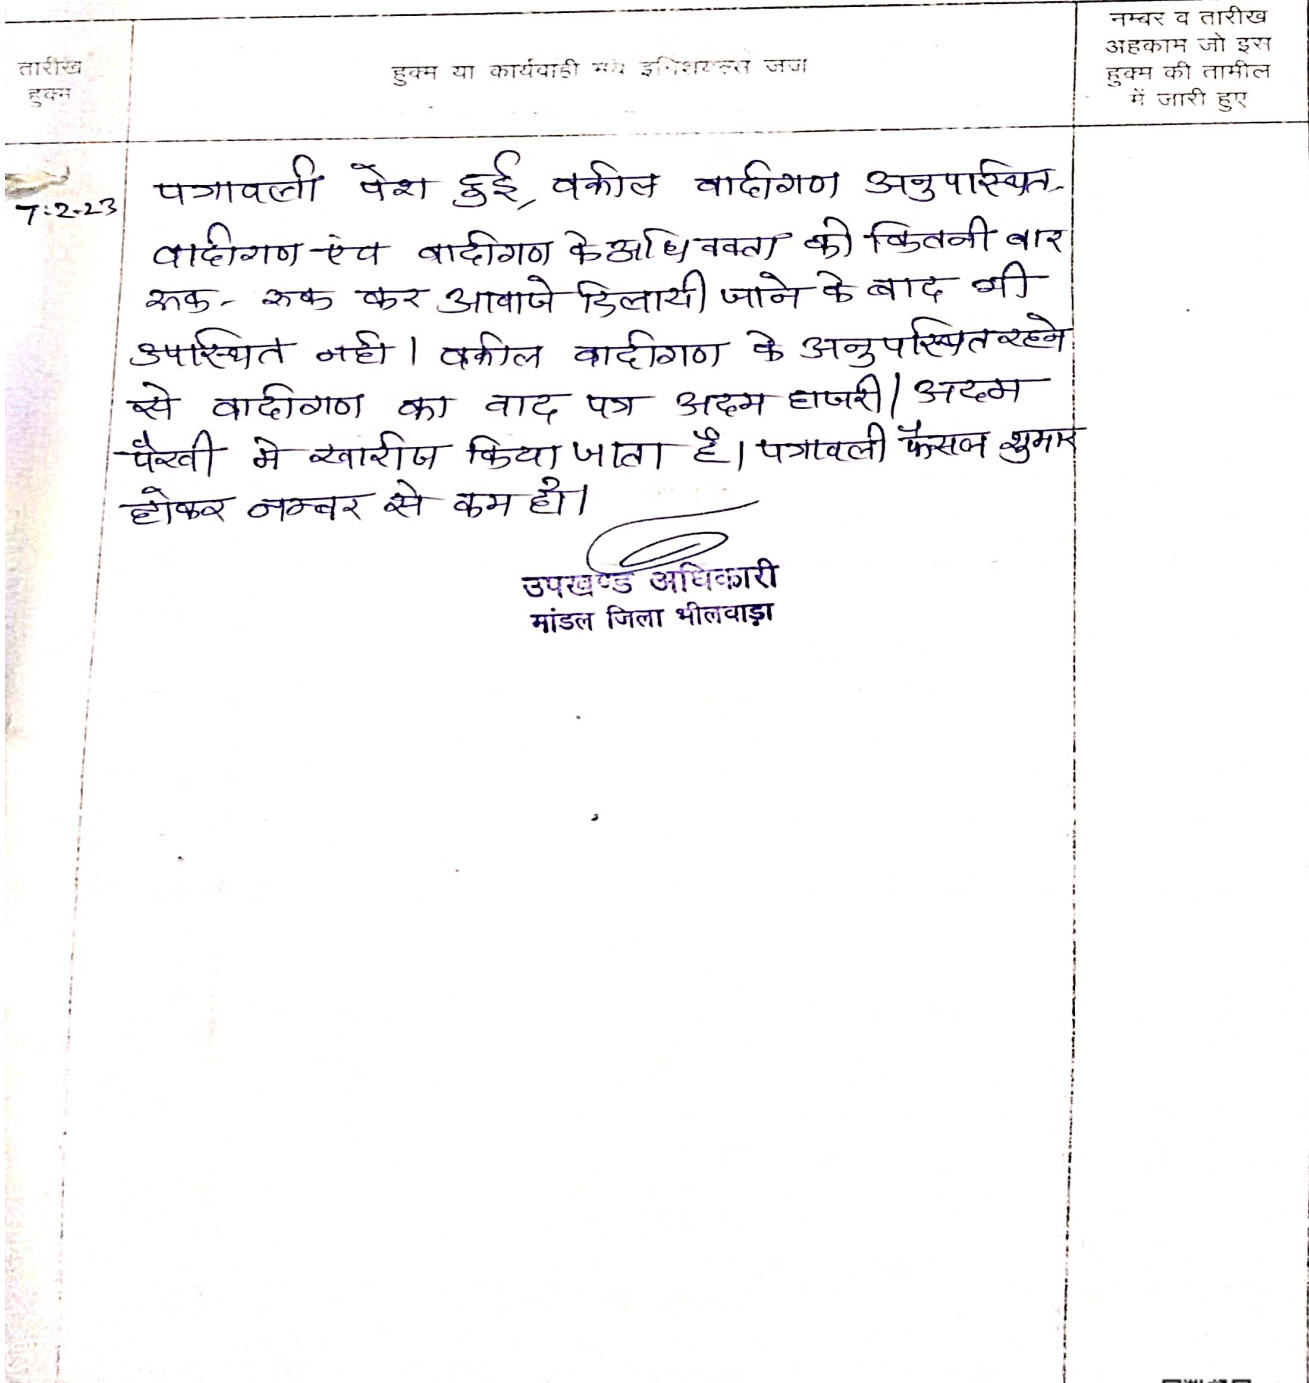 तारीख
हुक्म
हुक्म या कार्यवाही मय इनिशियल्स जज
नम्बर व तारीख
अहकाम जो इस
हुक्म की तामील
में जारी हुए
7-2-23
पत्रावली पेश हुई, वकील वादीगण अनुपास्थित,
वादीगण एंव वादीगण के अधिवक्ता को कितनी बार
रूक - रूक कर आवाजे दिलायी जाने के बाद भी
उपस्थित नही । वकील वादीगण के अनुपस्थित रहने
से वादीगण का वाद पत्र अदम हाजरी / अदम
पैरवी मे खारीज किया जाता है। पत्रावली फैसल शुमार
होकर नम्बर से कम हो।
उपखण्ड अधिकारी
मांडल जिला भीलवाड़ा